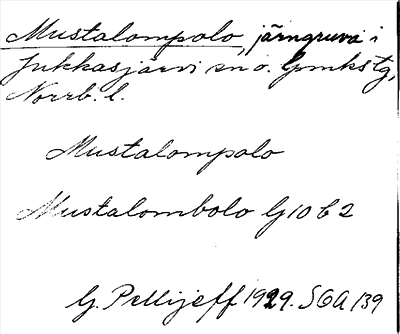 Mustalompolo, järngruva i
Jukkasjärvi sn o. lpmkstg,
Norrb. l.
Mustalompolo
Mustalombolo G 10 b 2
G. Pellijeff 1929. SOA 139